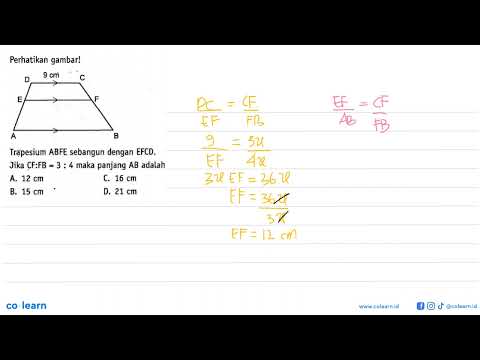 Perhatikan gambar!
D 9 cm C
E F
A B
Trapesium ABFE sebangun dengan EFCD.
Jika CF:FB = 3 : 4 maka panjang AB adalah
A. 12 cm C. 16 cm
B. 15 cm D. 21 cm
DC/EF = CF/FB
9/EF = 3x/4x
3x EF = 36x
EF = 36x/3x
EF = 12 cm
EF/AB = CF/FB
co learn
www.colearn.id @colearn.id